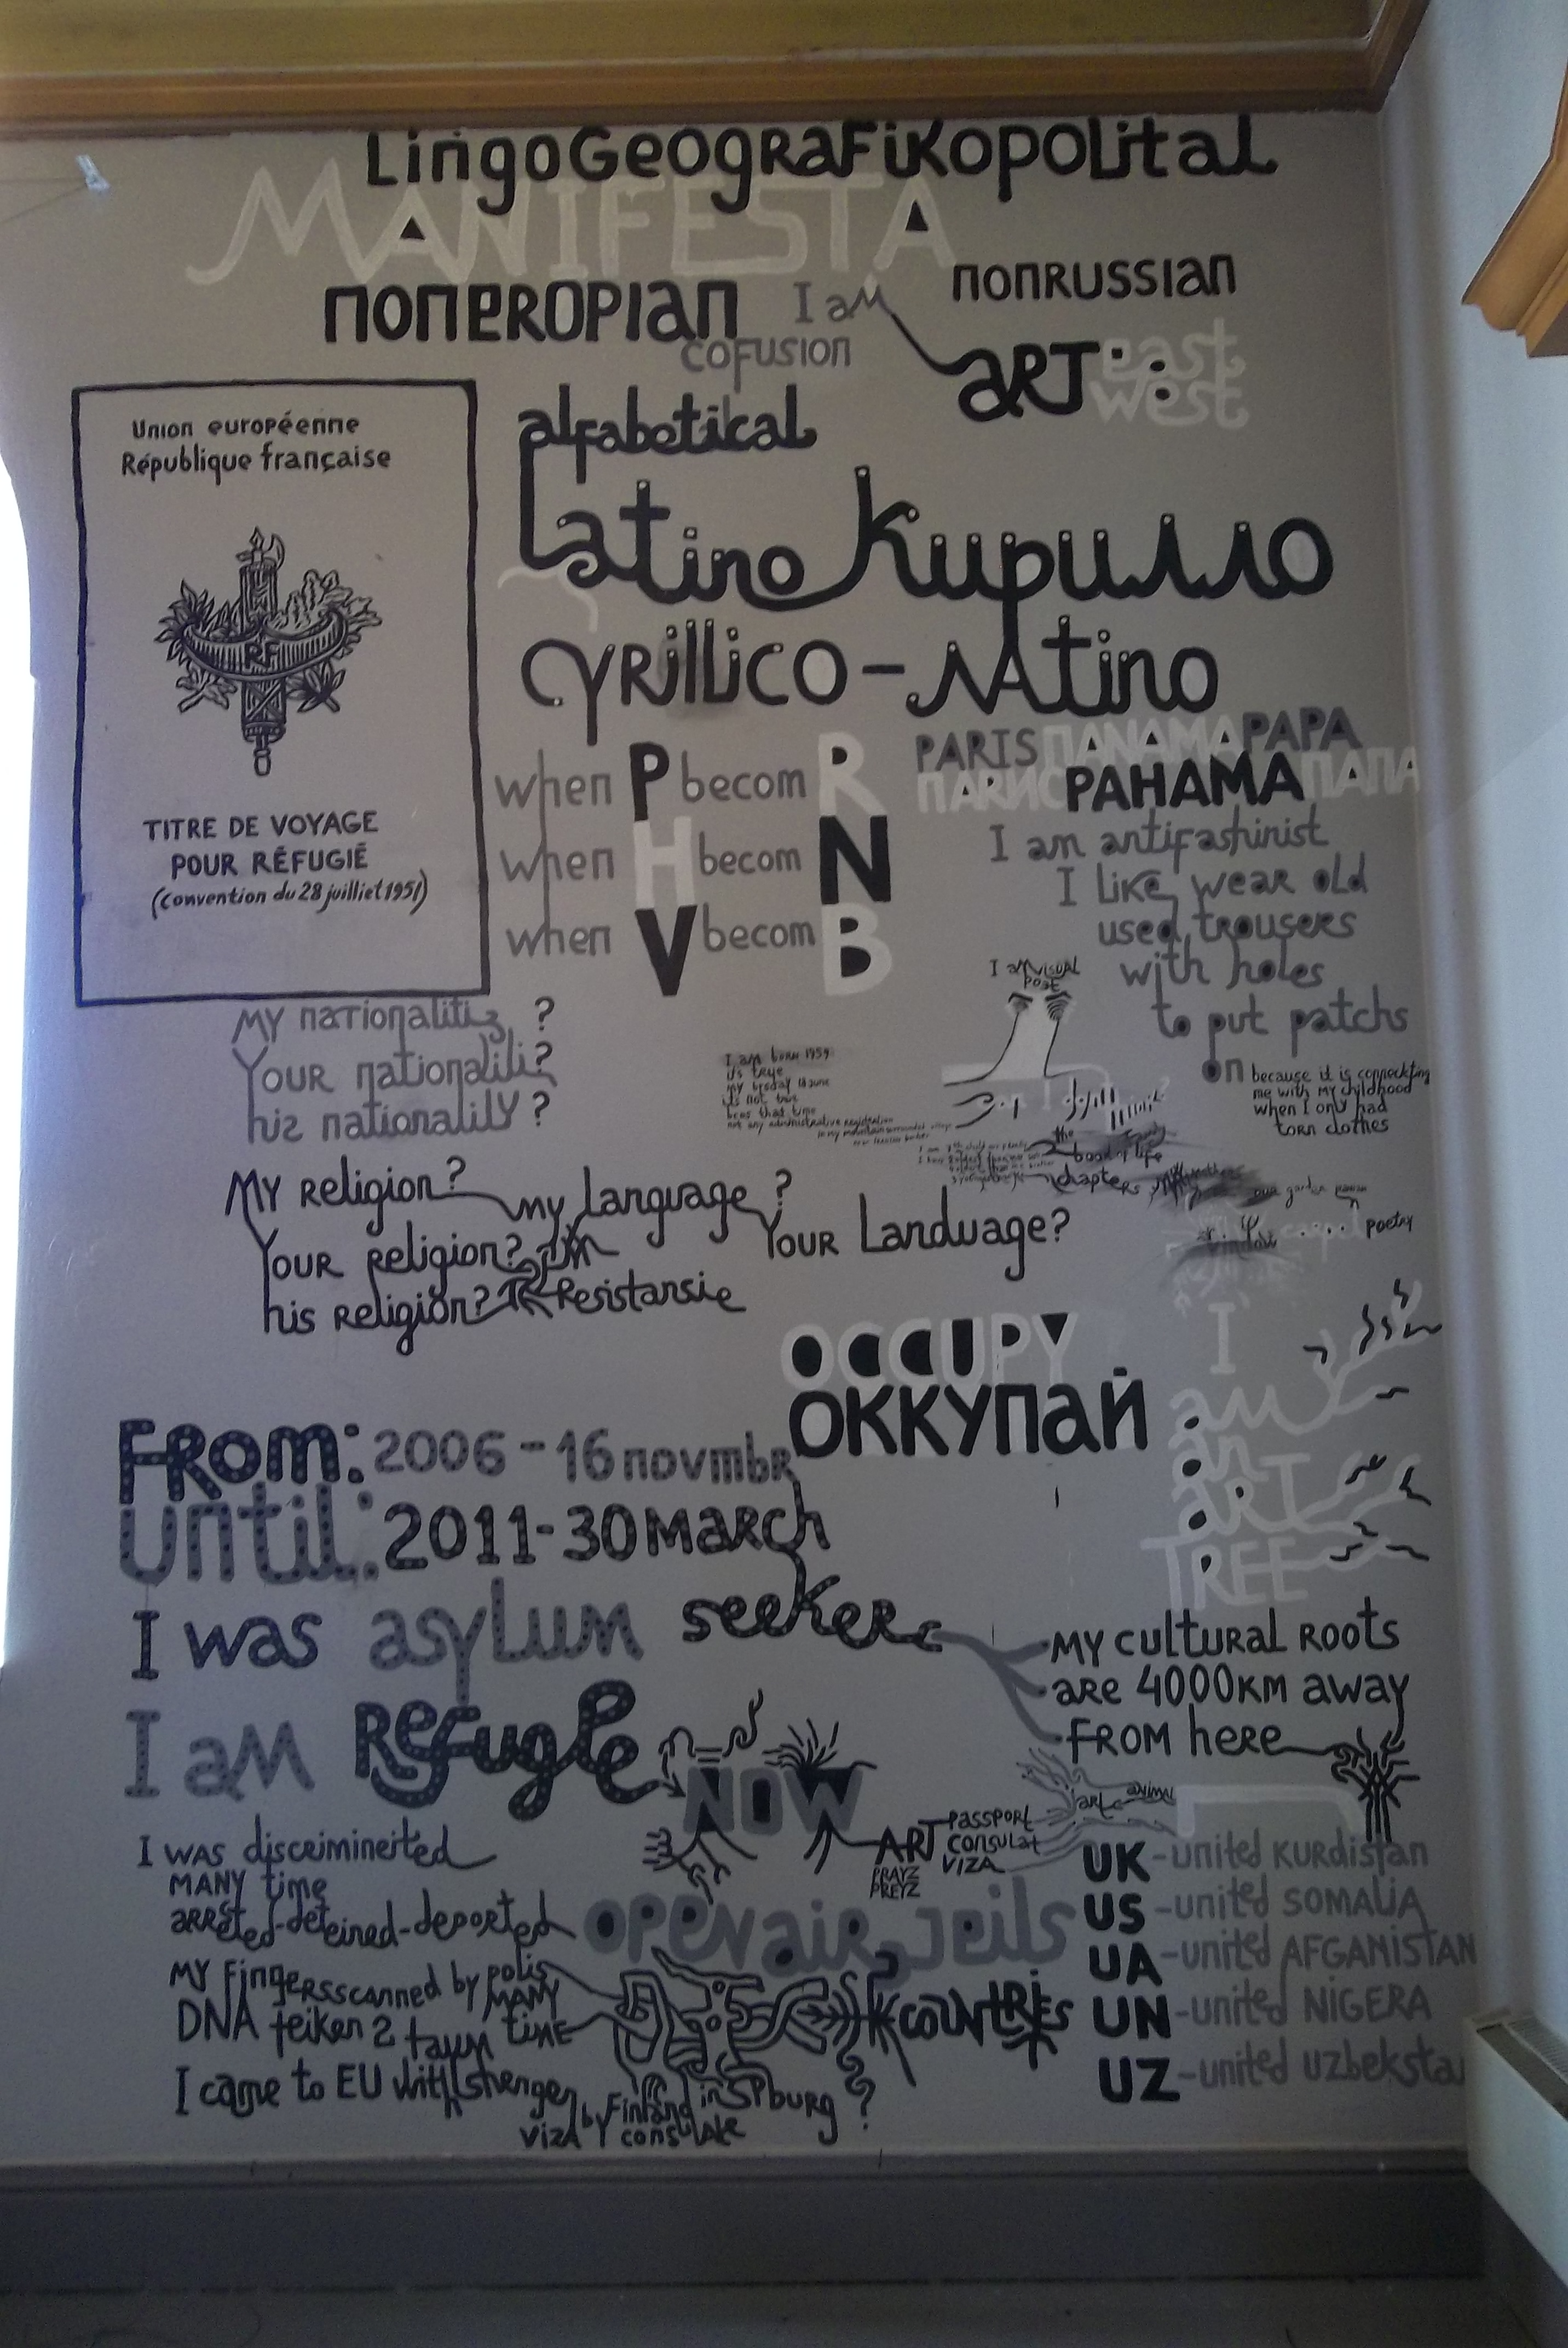 LingoGeogRaFiKopoLital
MANIFESTA
nonEROPIan
I am
nonRUSSIan
COFUSION
ART
east
west
Union européenne
République française
RF
TITRE DE VOYAGE
POUR RÉFUGIÉ
(Convention du 28 juilliet 1951)
alfabetical
Latino Кирилло
CYRilliCO-ЛAtino
when P becom R
when H becom N
when V becom B
PARIS ПANAMA PAPA
ПАRИС РАНАМА ПАПА
I am antifashinist
I Like wear old
used trousers
with holes
to put patchs
on because it is conneckting
me with my childhood
when I only had
torn clothes
I am visual
poet
My nationalitiz ?
Your nationaliti?
hiz nationality ?
I am born 1959
its trye
not any administrative registration
the
book of life
chapters
poetry
My Religion? my Language ?
Your religion? Your Landuage?
his religion? Resistansie
OCCUPY
ОККУПАЙ
I
am
an
ART
TREE
FROM: 2006-16 novmbr
until: 2011-30 March
I was asylum seeker
My cultural Roots
are 4000km away
FROM here
I am Refugie NOW
ART
PRAYZ
PREYZ
passport
consulat
VIZA
art animal
I was discrimineited
MANY time
arreted-deteined-deported
OPEN air Jeils
COUNTRIES
My Fingers scanned by polis
MANY
TIME
DNA teiken 2 taym
I came to EU with shengen
viza by Finland in SPburg ?
consulate
UK-united KURdistan
US-united SOMALIA
UA-united AFGANISTAN
UN-united NIGERA
UZ-united uzbeksta